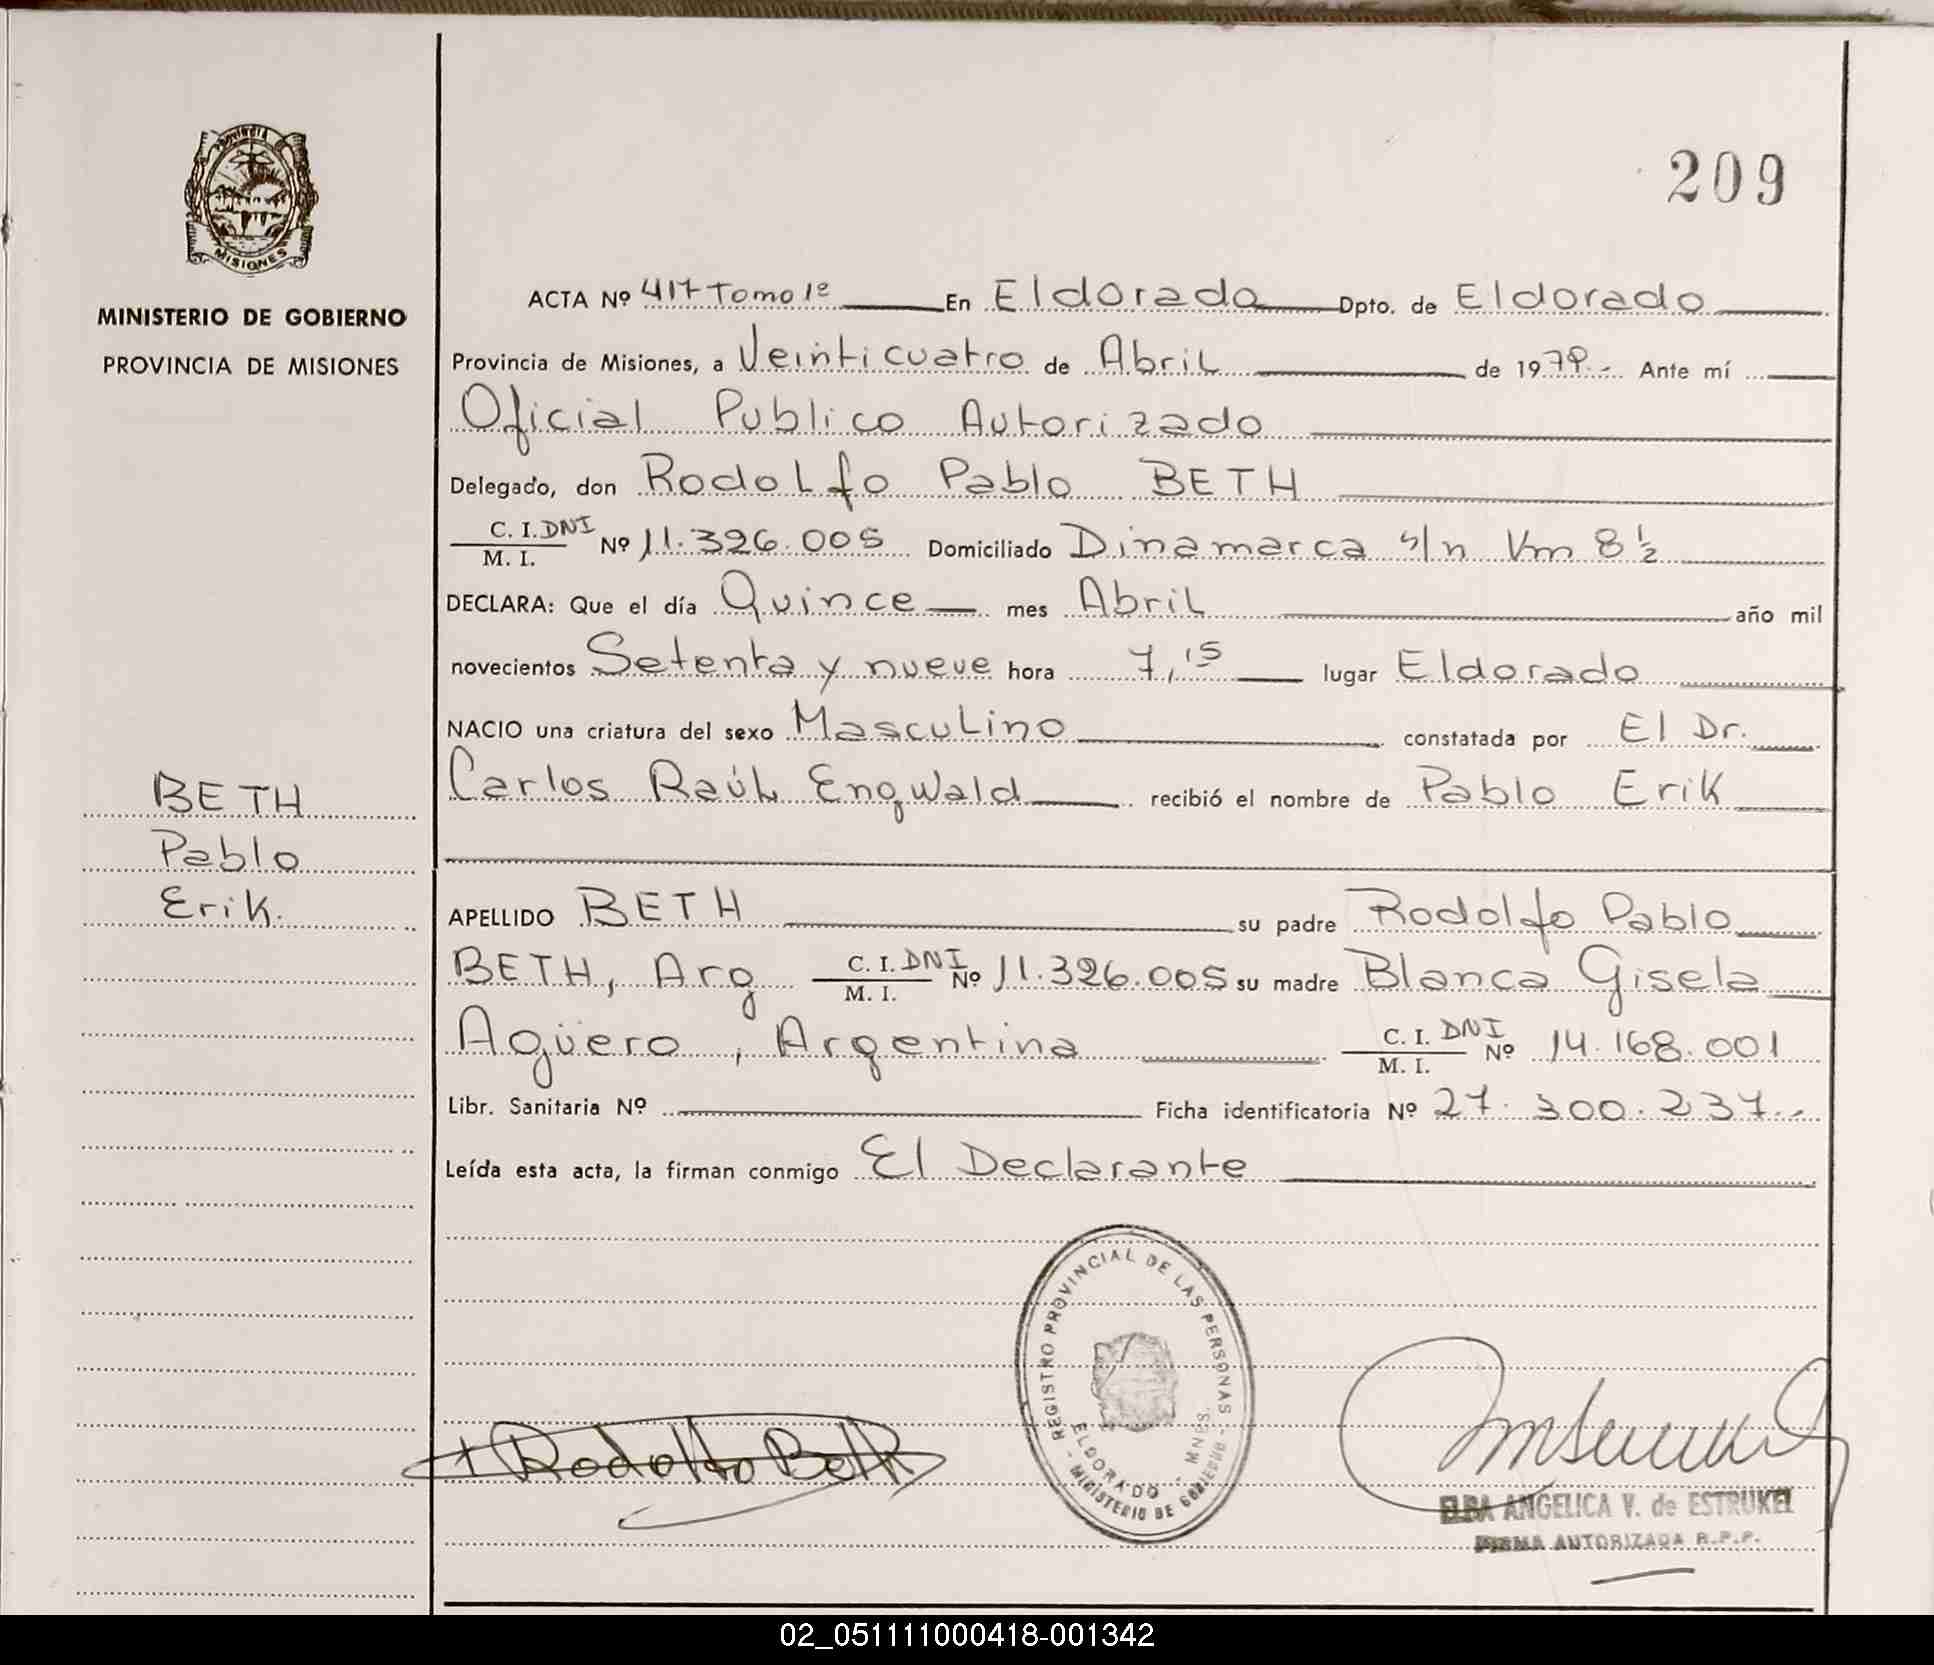 209
PROVINCIA
MISIONES
MINISTERIO DE GOBIERNO
PROVINCIA DE MISIONES
ACTA Nº 417 Tomo 1º En Eldorado Dpto. de Eldorado
Provincia de Misiones, a Veinticuatro de Abril de 1979.- Ante mí
Oficial Publico Autorizado
Delegado, don Rodolfo Pablo BETH
C. I. DNI
M. I.
Nº 11.326.005 Domiciliado Dinamarca s/n Km 8 ½
DECLARA: Que el día Quince mes Abril año mil
novecientos Setenta y nueve hora 7,15 lugar Eldorado
NACIO una criatura del sexo Masculino constatada por El Dr.
Carlos Raúl Engwald recibió el nombre de Pablo Erik
BETH
Pablo
Erik.
APELLIDO BETH su padre Rodolfo Pablo
BETH, Arg C. I. DNI M. I. Nº 11.326.005 su madre Blanca Gisela
Agüero, Argentina C. I. DNI M. I. Nº 14.168.001
Libr. Sanitaria Nº Ficha identificatoria Nº 27.300.237.-
Leída esta acta, la firman conmigo El Declarante
REGISTRO PROVINCIAL DE LAS PERSONAS
ELDORADO - MNES.
MINISTERIO DE GOBIERNO
Rodolfo Beth
ELBA ANGELICA V. de ESTRUKEL
FIRMA AUTORIZADA R.P.P.
02_051111000418-001342